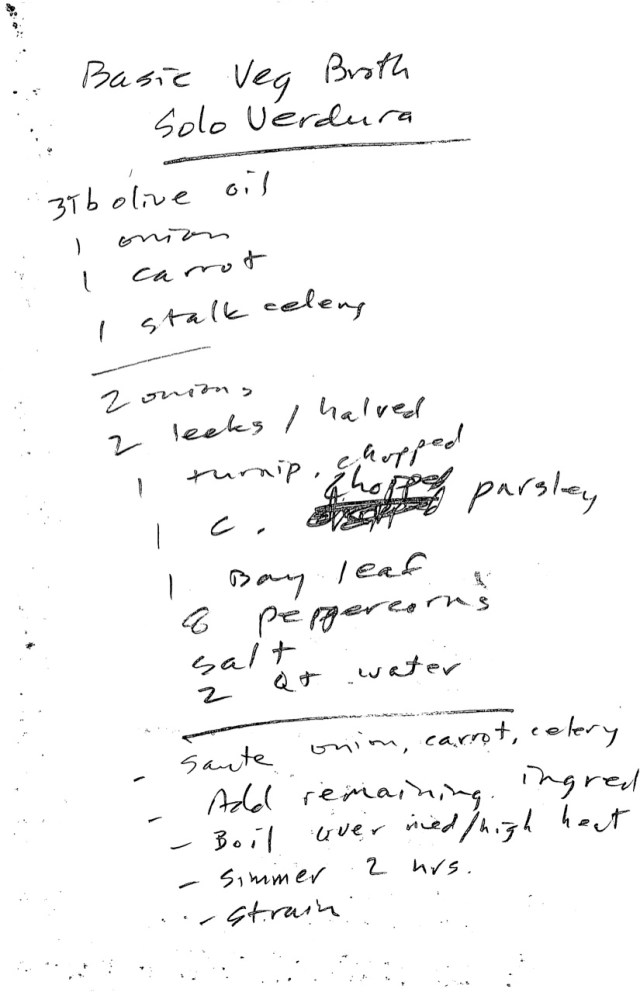 Basic Veg Broth
Solo Verdura
3Tb olive oil
1 onion
1 carrot
1 stalk celery
2 onions
2 leeks / halved
1 turnip, chopped
1 C. chopped parsley
1 Bay leaf
8 peppercorns
salt
2 Qt water
- Saute onion, carrot, celery
- Add remaining ingred
- Boil over med/high heat
- Simmer 2 hrs.
- Strain